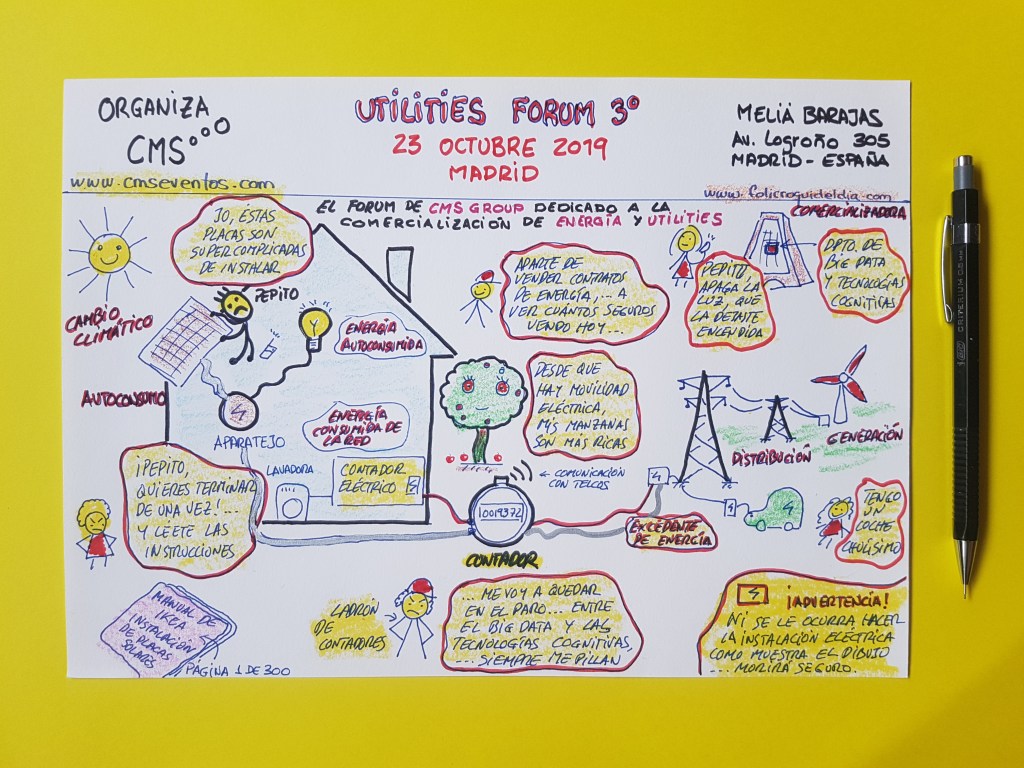 ORGANIZA
CMS
www.cmseventos.com
UTILITIES FORUM 3º
23 OCTUBRE 2019
MADRID
MELIÁ BARAJAS
Av. Logroño 305
MADRID - ESPAÑA
EL FORUM DE CMS GROUP DEDICADO A LA
COMERCIALIZACIÓN DE ENERGÍA Y UTILITIES
COMERCIALIZADORA
JO, ÉSTAS
PLACAS SON
SUPER COMPLICADAS
DE INSTALAR
PEPITO
CAMBIO
CLIMÁTICO
ENERGÍA
AUTOCONSUMIDA
APARTE DE
VENDER CONTRATOS
DE ENERGÍA,... A
VER CUÁNTOS SEGUROS
VENDO HOY...
PEPITO,
APAGA LA
LUZ, QUE
LA DEJASTE
ENCENDIDA
DPTO. DE
BIG DATA
Y TECNOLOGÍAS
COGNITIVAS
AUTOCONSUMO
APARATEJO
ENERGÍA
CONSUMIDA DE
LA RED
DESDE QUE
HAY MOVILIDAD
ELÉCTRICA,
MIS MANZANAS
SON MÁS RICAS
GENERACIÓN
DISTRIBUCIÓN
¡PEPITO,
QUIERES TERMINAR
DE UNA VEZ!...
... Y LÉETE LAS
INSTRUCCIONES
LAVADORA
CONTADOR
ELÉCTRICO
← COMUNICACIÓN
CON TELCOS
10019372
CONTADOR
EXCEDENTE
DE ENERGÍA
TENGO
UN
COCHE
CHULÍSIMO
MANUAL DE
IKEA
INSTALACIÓN
DE PLACAS
SOLARES
PÁGINA 1 DE 300
LADRÓN
DE
CONTADORES
... ME VOY A QUEDAR
EN EL PARO... ENTRE
EL BIG DATA Y LAS
TECNOLOGÍAS COGNITIVAS,
... SIEMPRE ME PILLAN
¡ADVERTENCIA!
NI SE LE OCURRA HACER
LA INSTALACIÓN ELÉCTRICA
COMO MUESTRA EL DIBUJO
... MORIRÁ SEGURO.
BIC CRITERIUM 0.5